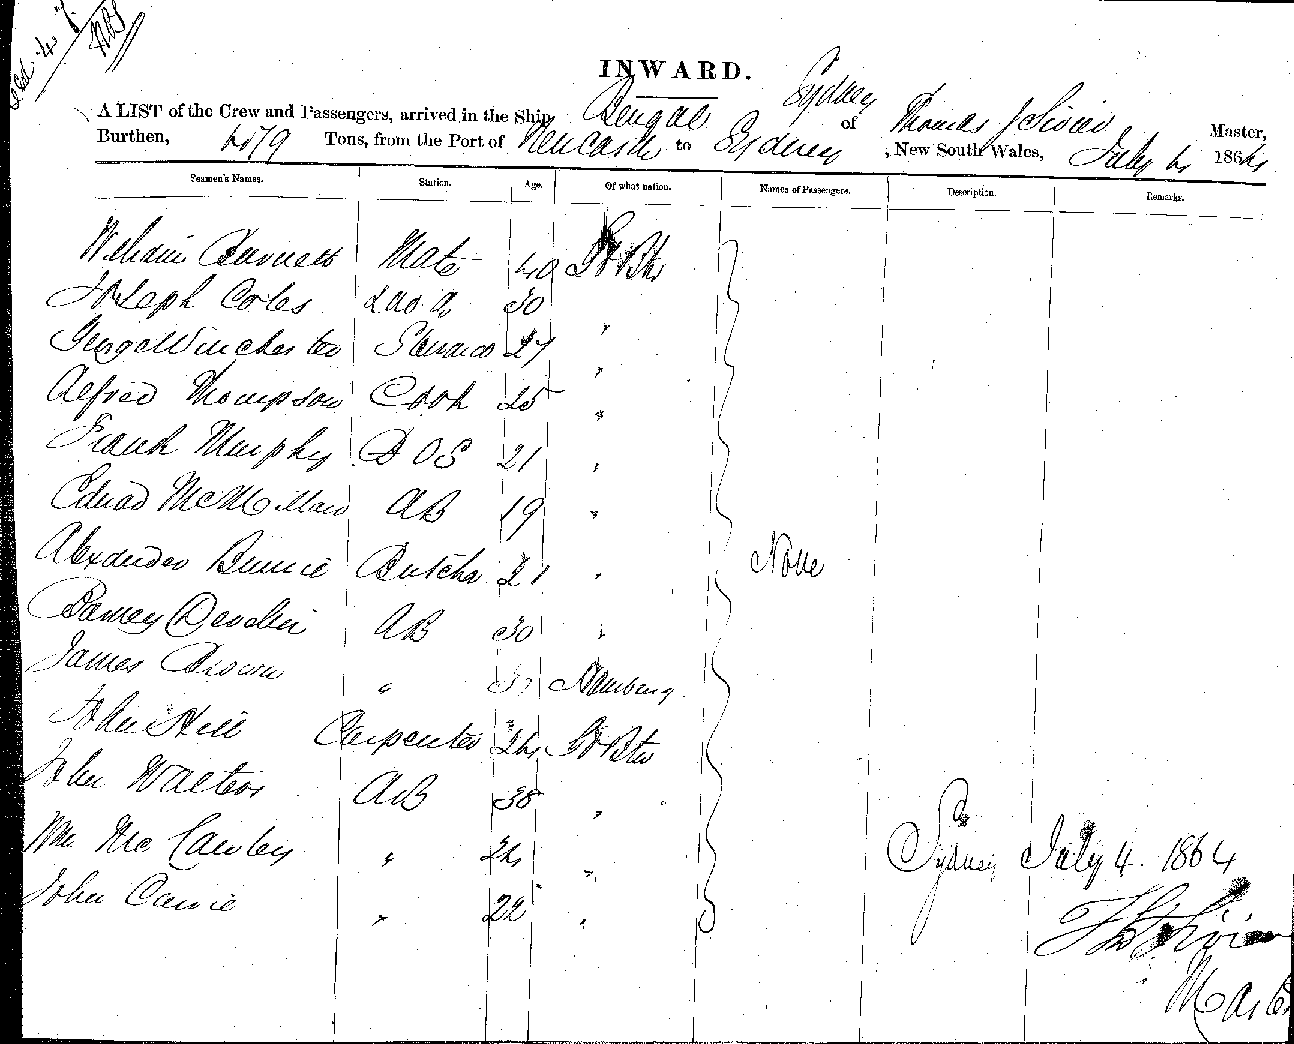 INWARD.
A LIST of the Crew and Passengers, arrived in the Ship Bengal of Sydney Thomas J Sivier Master,
Burthen, 479 Tons, from the Port of Newcastle to Sydney , New South Wales, July 4 1864
Seamen's Names. Station. Age. Of what nation. Names of Passengers. Description. Remarks.
William Mate 40 Gt Btn
Joseph Coles 30 "
George Winchester Steward 27 "
Alfred Thompson Cook 25 "
Frank Murphy OS 21 "
Edward McMillan AB 19 "
Alexander Binnie Butcher 21 " None
Barney Devlin AB 30 "
James Brown " Hamburg
John Hill Carpenter 24 Gt Btn
John Walters AB 38 "
Wm McCawley " 24 "
John " 22 "
Sydney July 4. 1864
Thos J Sivier
Master